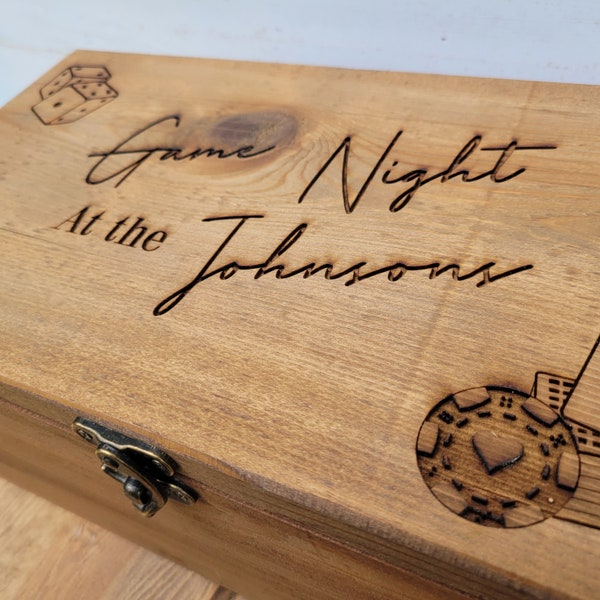 Game Night
At the Johnsons